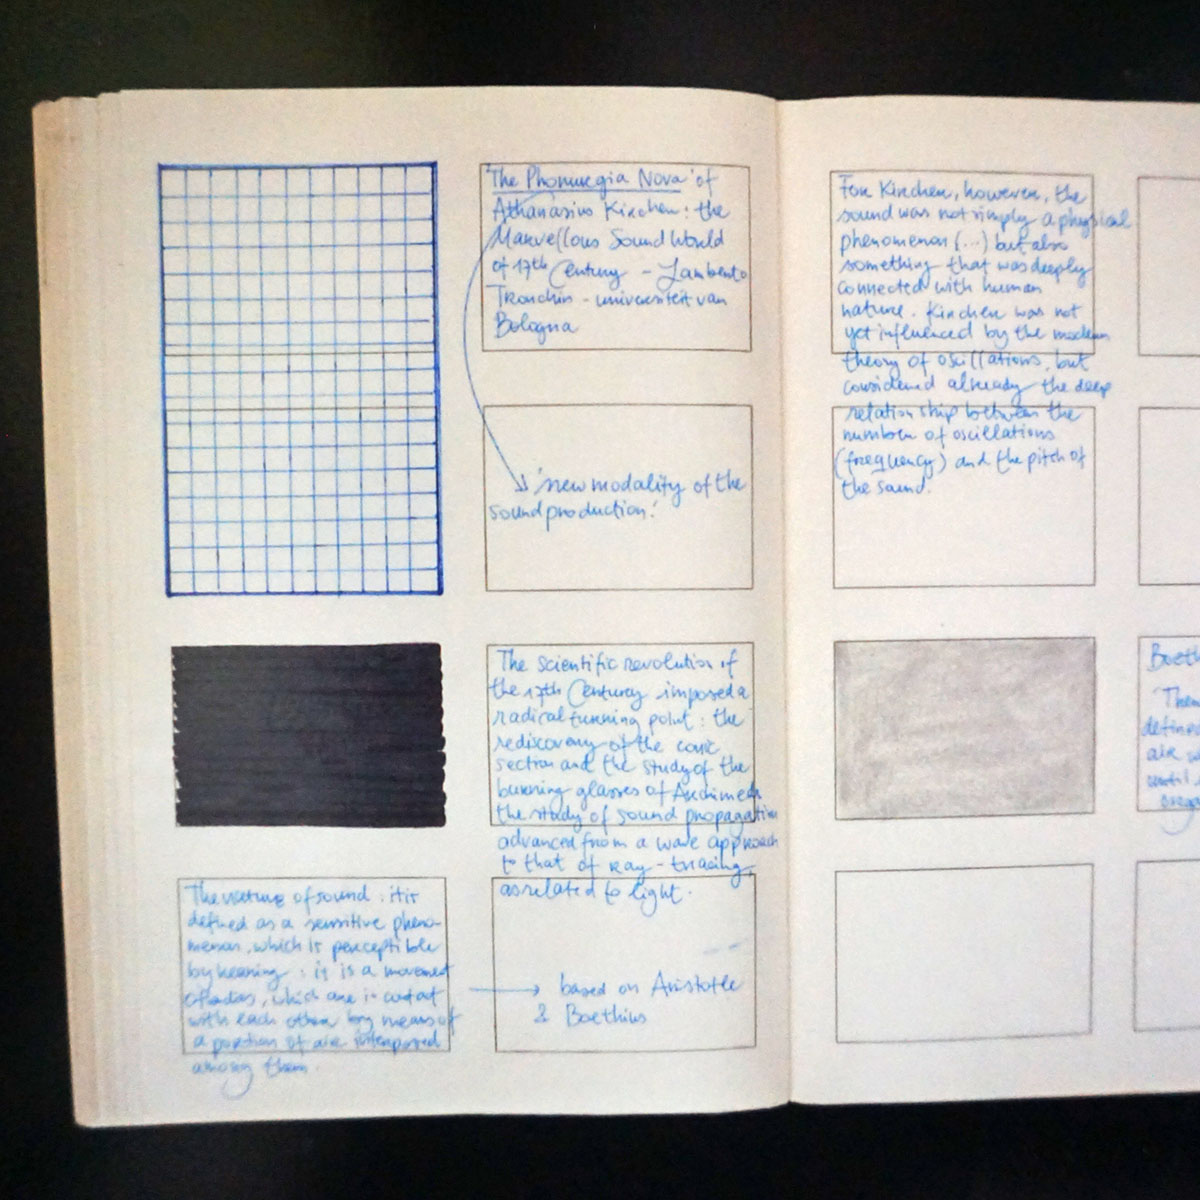 'The Phonurgia Nova' of
Athanasius Kircher: the
Marvellous Sound World
of 17th Century - Lamberto
Tronchin - universiteit van
Bologna
'new modality of the
sound production'
The scientific revolution of
the 17th Century imposed a
radical turning point: the
rediscovery of the conic
section and the study of the
burning glasses of Archimedes
the study of sound propagation
advanced from a wave approach
to that of ray-tracing,
as related to light.
The nature of sound: it is
defined as a sensitive pheno-
menon, which is perceptible
by hearing: it is a movement
of , which are in contact
with each other by means of
a portion of air interposed
among them.
based on Aristotle
& Boethius
For Kircher, however, the
sound was not simply a physical
phenomenon (...) but also
something that was deeply
connected with human
nature. Kircher was not
yet influenced by the modern
theory of oscillations, but
considered already the deep
relationship between the
number of oscillations
(frequency) and the pitch of
the sound.
Boeth
defined
air
until